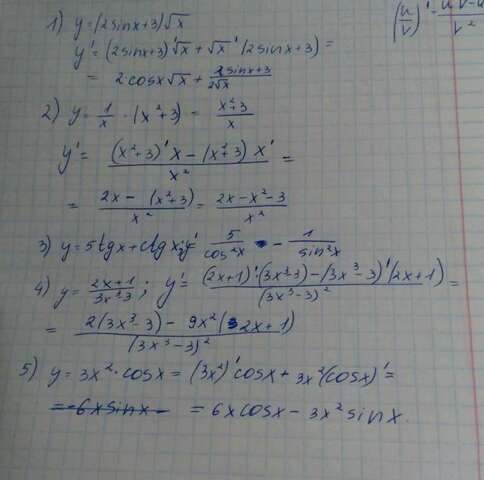 (u/v)' = u'v-u / v²
1) y=(2sinx+3)√x
y'=(2sinx+3)'√x+√x'(2sinx+3)=
= 2cosx√x+ 2sinx+3 / 2√x
2) y= 1/x · (x²+3)= x²+3 / x
y'= (x²+3)'x-(x²+3)x' / x² =
= 2x-(x²+3) / x² = 2x-x²-3 / x²
3) y=5tgx+ctgx; y' 5/cos²x - 1/sin²x
4) y= 2x+1 / 3x³-3 ; y'= (2x+1)'(3x³-3)-(3x³-3)'(2x+1) / (3x³-3)² =
= 2(3x³-3)-9x²(2x+1) / (3x³-3)²
5) y=3x²·cosx=(3x²)'cosx+3x²(cosx)'=
=-6xsinx =6xcosx-3x²sinx.